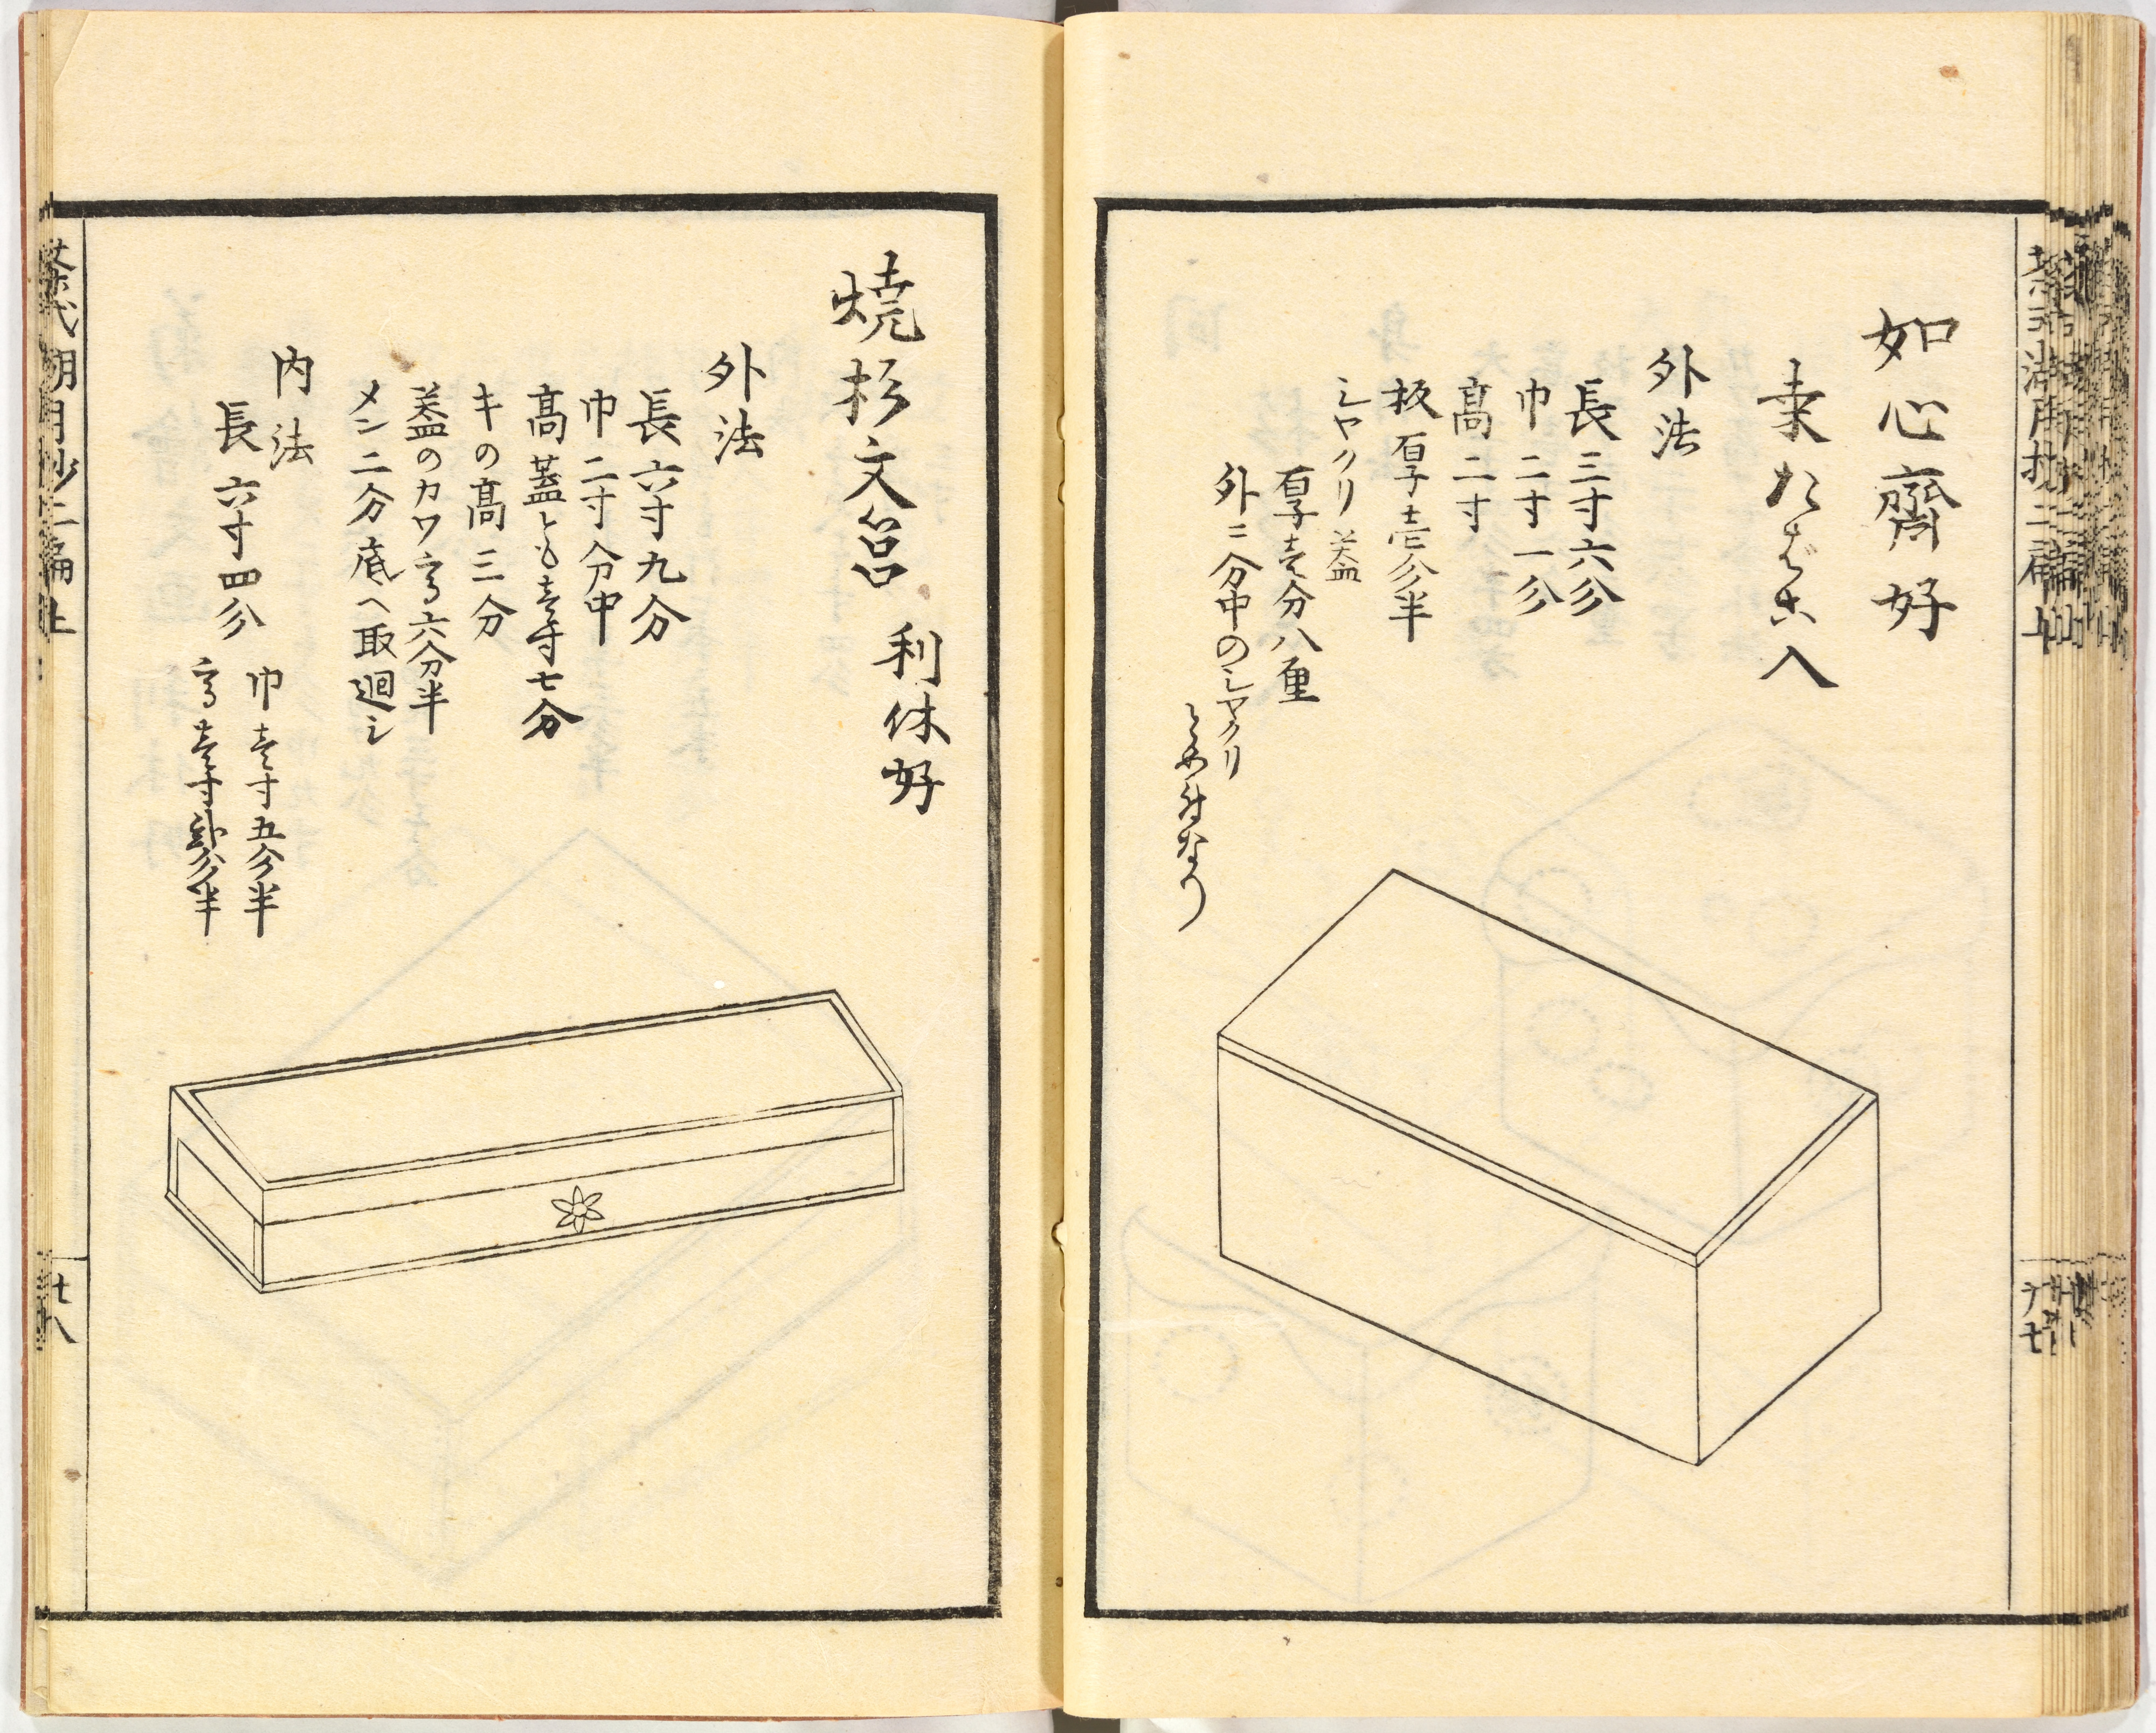 如心齋好
桒たばこ入
外法
長三寸六分
巾二寸一分
髙二寸
板厚壱分半
シヤクリ蓋
厚壱分八重
外ニ分中のシヤクリ
とめ付なり
燒杉文筥 利休好
外法
長六寸九分
巾二寸分中
髙蓋とも壱寸七分
キの髙三分
蓋のカワ高六分半
メン二分底へ取廻シ
内法
長六寸四分
巾壱寸五分半
高壱寸弐分半